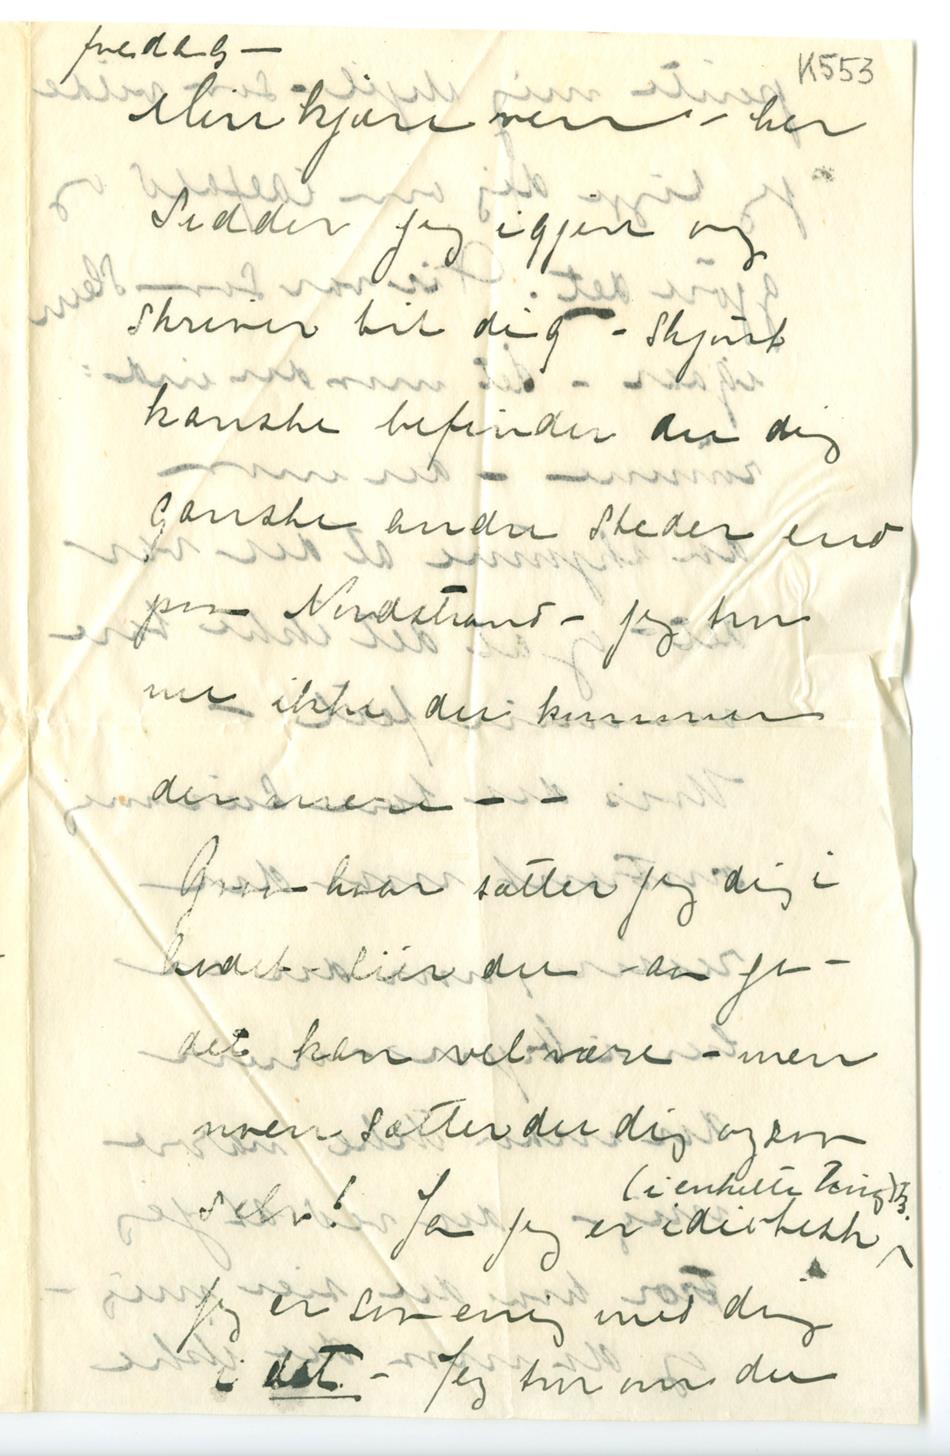 fredag —
K553
Min kjære ven – her
sidder jeg igjen og
skriver til dig – skjönt
kanske befinder du dig
ganske andre steder end
paa Nordstrand – jeg tror
nu ikke du kommer
der mere – –
hvor sætter jeg dig i
hodet – siir du – aa ja –
det kan vel være – men
noen sætter du dig ogsaa
selv! Ja jeg er idiotisk
(i enkelte Ting)
Jeg er saa enig med dig
i det – Jeg tror om du